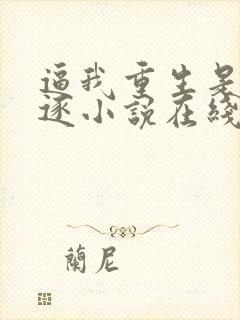 逼我重生是
逐小說在綫
蘭尼